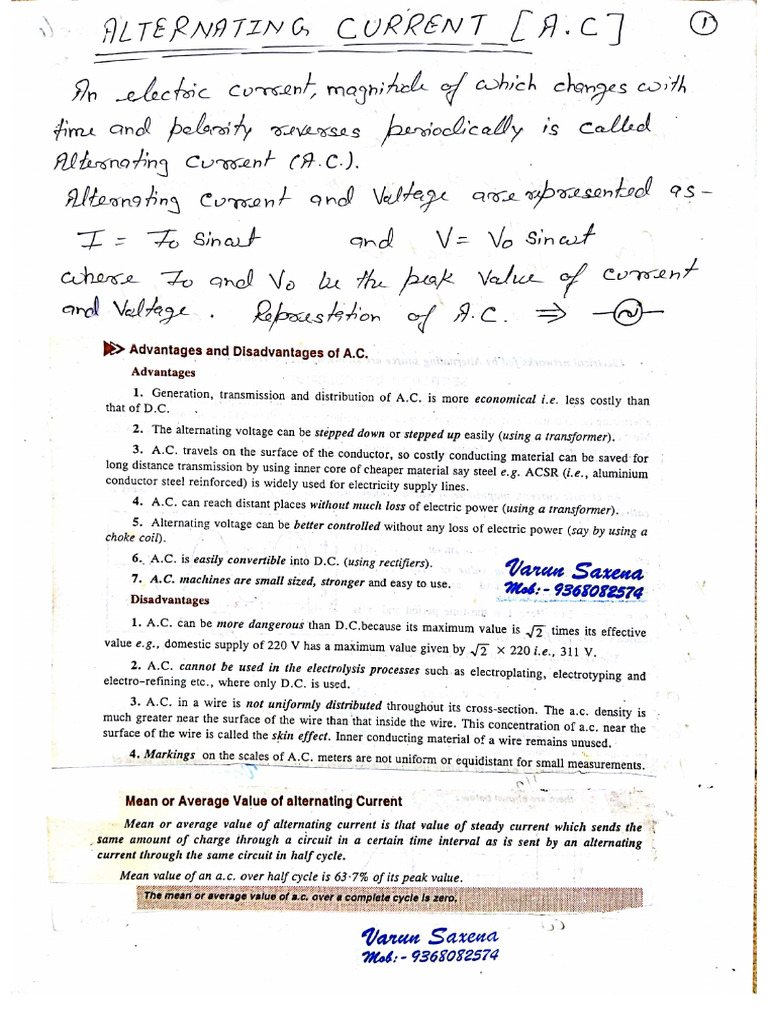 ALTERNATING CURRENT [A.C] 1
An electric current, magnitude of which changes with
time and polarity reverses periodically is called
Alternating Current (A.C.).
Alternating Current and Voltage are represented as-
I = I0 Sinωt and V = V0 Sinωt
where I0 and V0 be the peak value of current
and Voltage. Represtation of A.C. ⇒ ~
Advantages and Disadvantages of A.C.
Advantages
1. Generation, transmission and distribution of A.C. is more economical i.e. less costly than
that of D.C.
2. The alternating voltage can be stepped down or stepped up easily (using a transformer).
3. A.C. travels on the surface of the conductor, so costly conducting material can be saved for
long distance transmission by using inner core of cheaper material say steel e.g. ACSR (i.e., aluminium
conductor steel reinforced) is widely used for electricity supply lines.
4. A.C. can reach distant places without much loss of electric power (using a transformer).
5. Alternating voltage can be better controlled without any loss of electric power (say by using a
choke coil).
6. A.C. is easily convertible into D.C. (using rectifiers).
7. A.C. machines are small sized, stronger and easy to use.
Varun Saxena
Mob:- 9368082574
Disadvantages
1. A.C. can be more dangerous than D.C.because its maximum value is √2 times its effective
value e.g., domestic supply of 220 V has a maximum value given by √2 × 220 i.e., 311 V.
2. A.C. cannot be used in the electrolysis processes such as electroplating, electrotyping and
electro-refining etc., where only D.C. is used.
3. A.C. in a wire is not uniformly distributed throughout its cross-section. The a.c. density is
much greater near the surface of the wire than that inside the wire. This concentration of a.c. near the
surface of the wire is called the skin effect. Inner conducting material of a wire remains unused.
4. Markings on the scales of A.C. meters are not uniform or equidistant for small measurements.
Mean or Average Value of alternating Current
Mean or average value of alternating current is that value of steady current which sends the
same amount of charge through a circuit in a certain time interval as is sent by an alternating
current through the same circuit in half cycle.
Mean value of an a.c. over half cycle is 63·7% of its peak value.
The mean or average value of a.c. over a complete cycle is zero.
Varun Saxena
Mob:- 9368082574